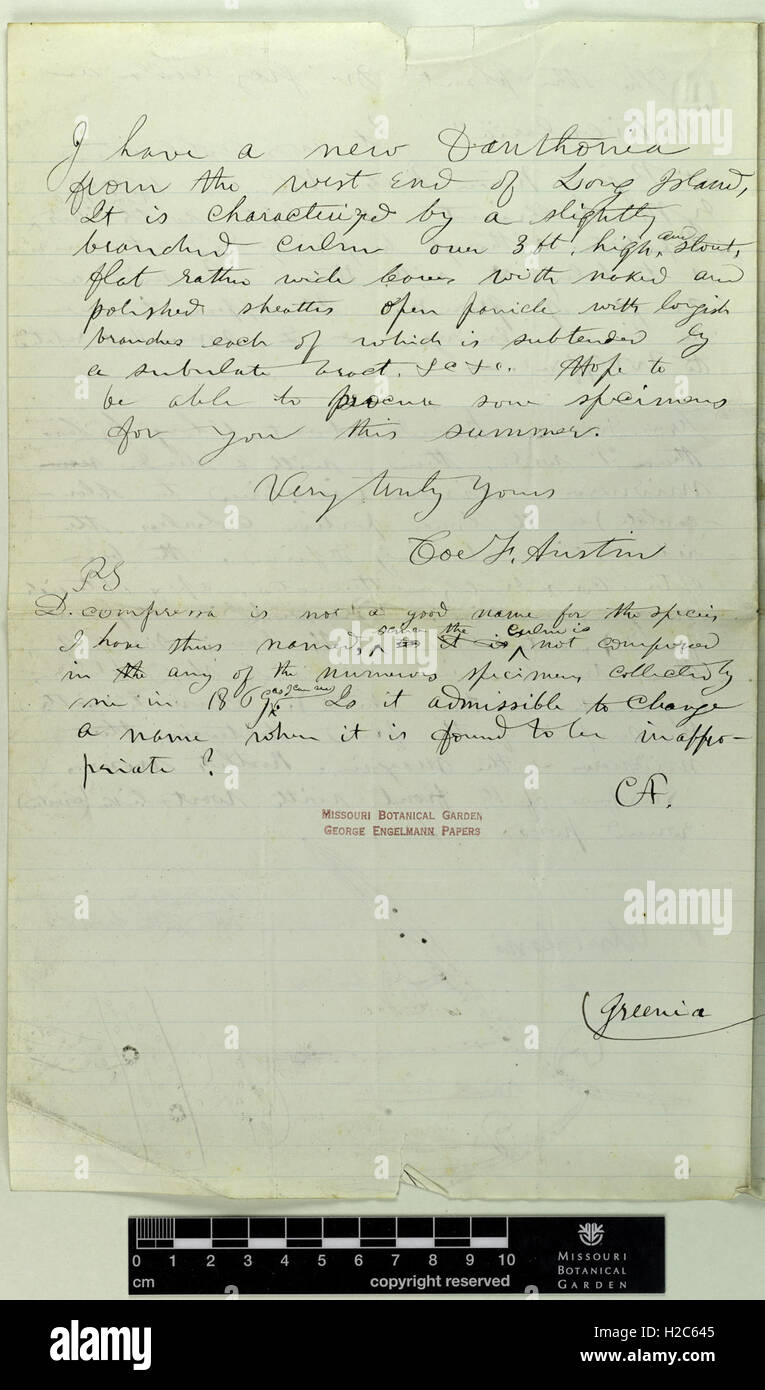 I have a new Danthonia
from the west end of Long Island,
It is characterized by a slightly
branched culm over 3 ft. high, and stout,
flat rather wide leaves with naked and
polished sheaths open panicle with longish
branches each of which is subtended by
a subulate bract. &c &c. Hope to
be able to procure some specimens
for you this summer.
Very truly Yours
Coe F. Austin
PS
D. compressa is not a good name for the species
I have thus named, the culm is not compressed
in any of the numerous specimens collected by
me in 186 Is it admissible to change
a name when it is found to be inappro-
priate?
CA.
MISSOURI BOTANICAL GARDEN
GEORGE ENGELMANN PAPERS
(Greenia
0 1 2 3 4 5 6 7 8 9 10
cm
copyright reserved
MISSOURI
BOTANICAL
GARDEN
alamy
alamy
Image ID: H2C645
www.alamy.com